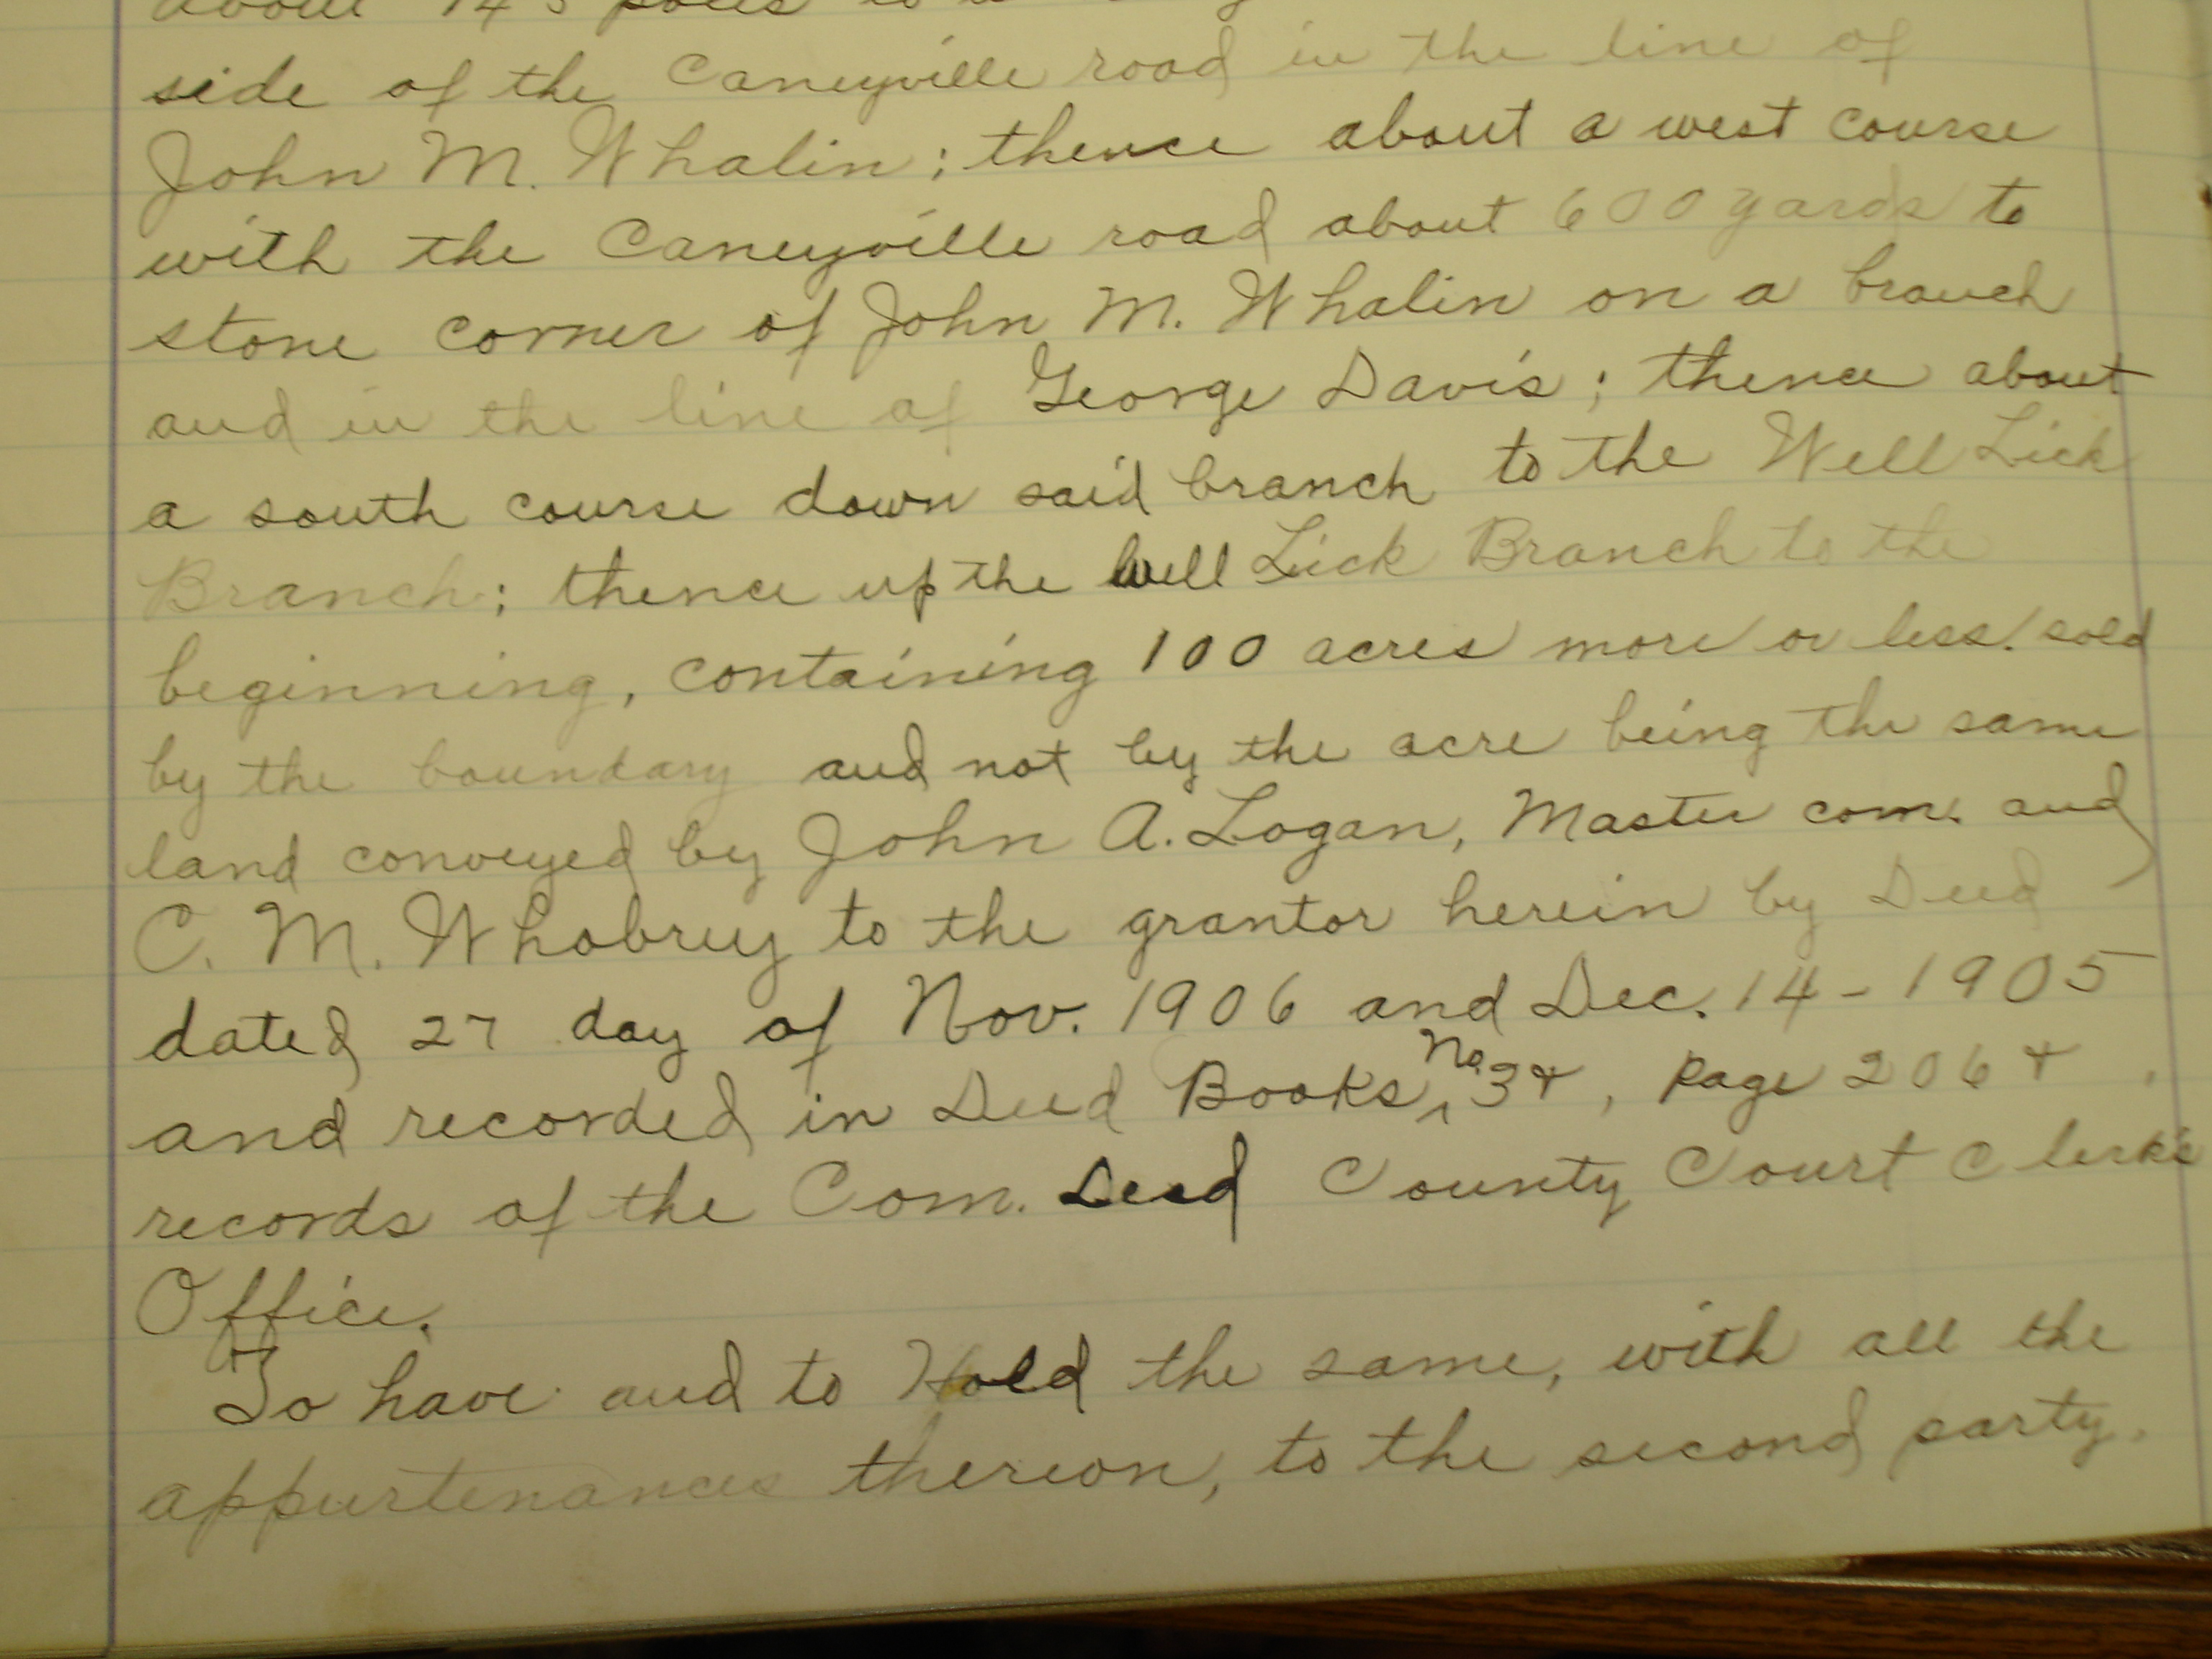 about 145 poles to a
side of the Caneyville road in the line of
John M. Whalin; thence about a west course
with the Caneyville road about 600 yards to
stone corner of John M. Whalin on a branch
and in the line of George Davis; thence about
a south course down said branch to the Well Lick
Branch; thence up the Well Lick Branch to the
beginning, containing 100 acres more or less. sold
by the boundary and not by the acre being the same
land conveyed by John A. Logan, Master com. and
C. M. Whobrey to the grantor herein by Deed
dated 27 day of Nov. 1906 and Dec. 14-1905
and recorded in Deed Books No. 3 & , page 206 &
records of the Com. Deed County Court Clerk's
Office.
To have and to Hold the same, with all the
appurtenances thereon, to the second party.